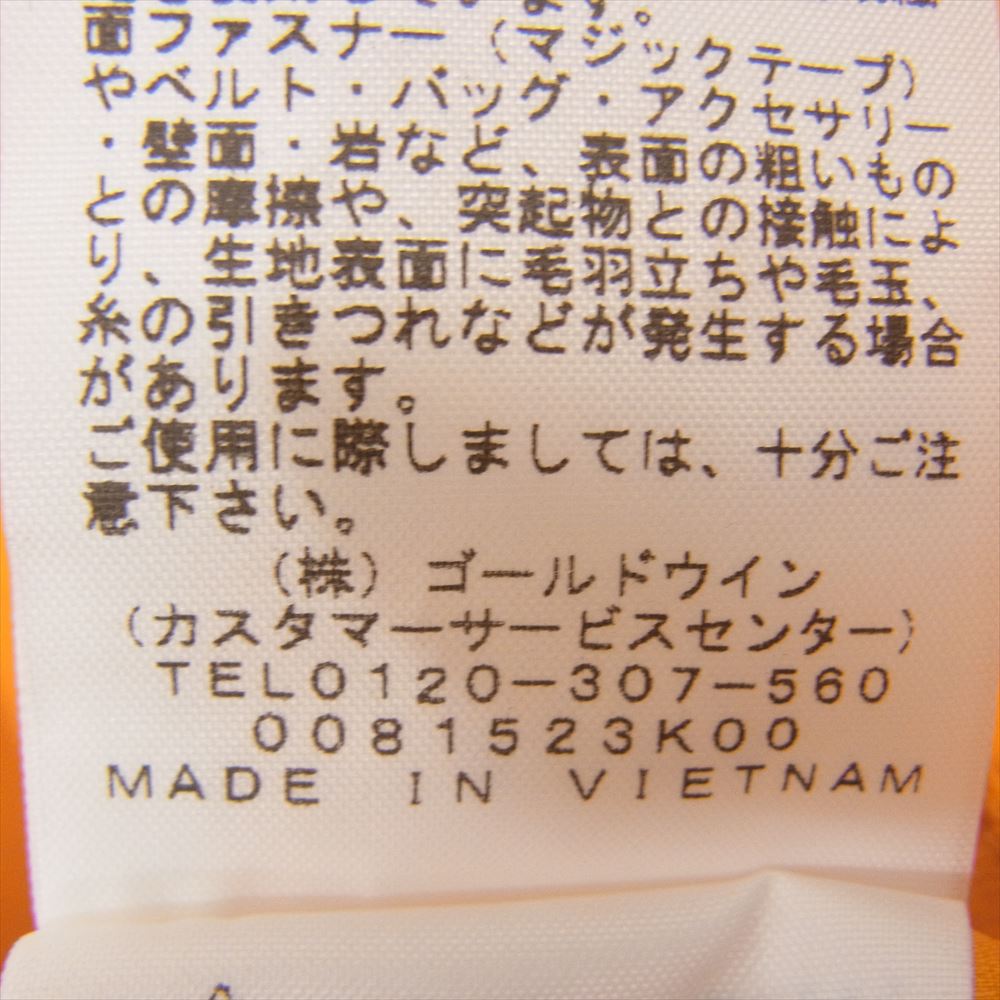 ます。
面ファスナー（マジックテープ）
やベルト・バッグ・アクセサリー
・壁面・岩など、表面の粗いもの
との摩擦や、突起物との接触によ
り、生地表面に毛羽立ちや毛玉、
糸の引きつれなどが発生する場合
があります。
ご使用に際しましては、十分ご注
意下さい。
（株）ゴールドウイン
（カスタマーサービスセンター）
TEL0120-307-560
0081523K00
MADE IN VIETNAM